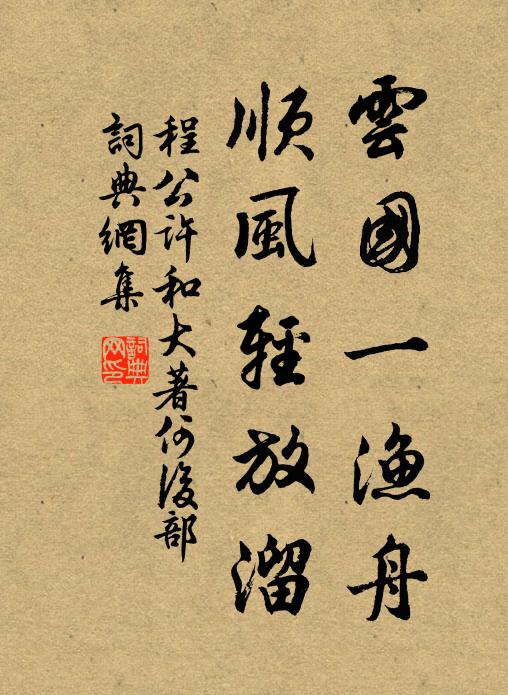 雲國一漁舟
順風輕放溜
程公許和大著何後部
詞典網集
詞典网印